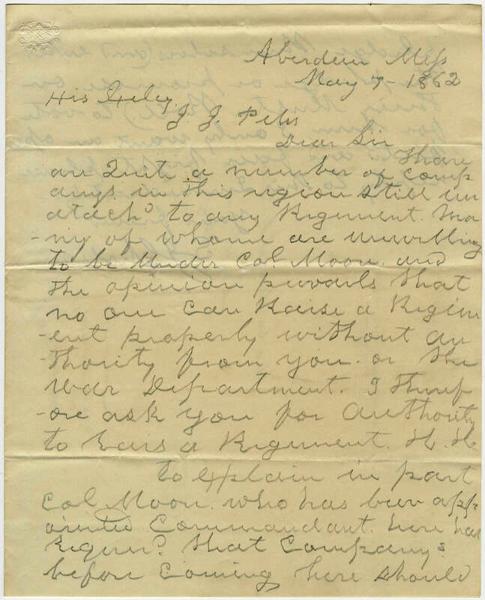 Aberdeen Miss
May 7 - 1862
His Exlcy.
J. J. Petis
Dear Sir
Thare
are Quit a number of comp
anys in this region still un
atach^d to any Regiment. Ma
-ny of whome are unwilling
to be under Col Moon. and
the opinion pervails that
no one can Raise a Regim
ent properly without au
-thority from you. or the
War Department. I theref
-ore ask you for authority
to Rais a Regiment.
to Explain in part
Col Moon. who has been app
ointed Commandant. here has
Requir^d that Companys
before coming here should